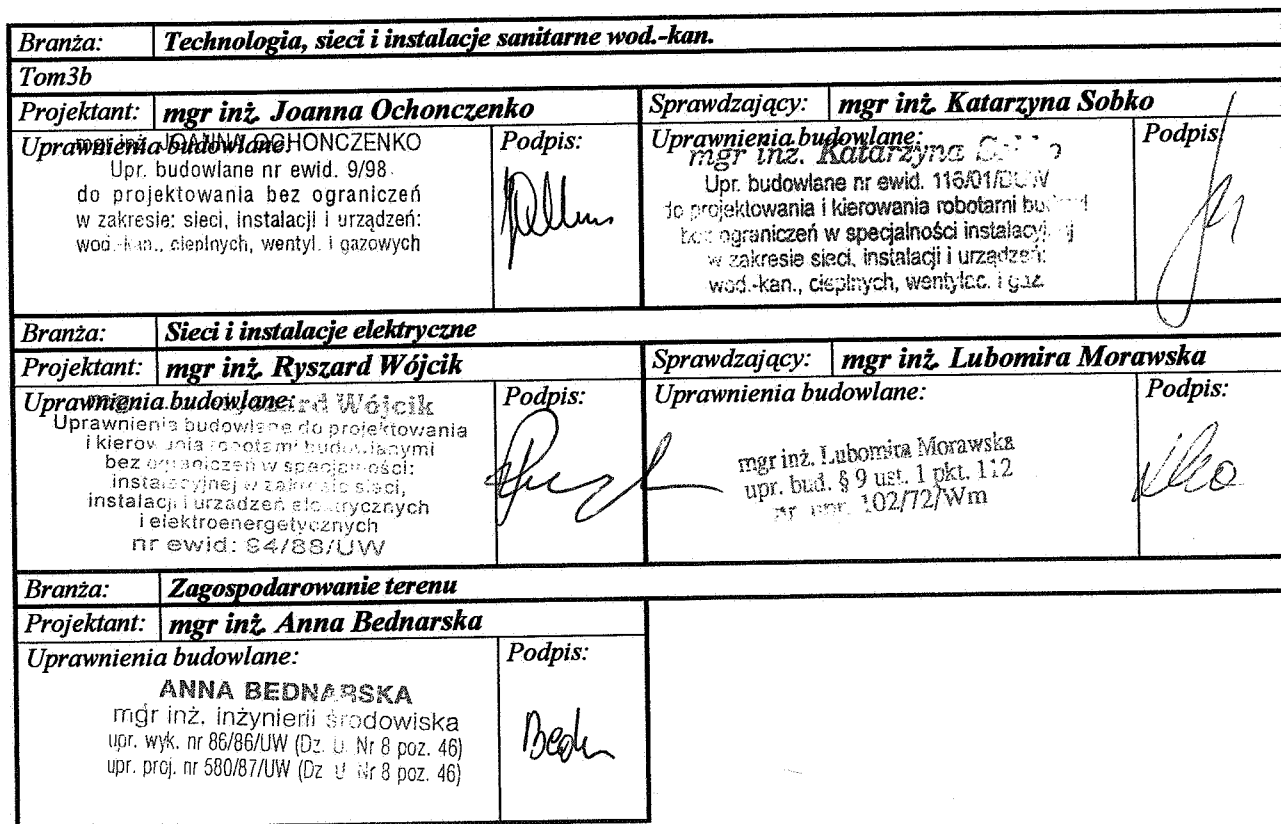 Branża: Technologia, sieci i instalacje sanitarne wod.-kan.
Tom3b
Projektant: mgr inż. Joanna Ochonczenko
Sprawdzający: mgr inż. Katarzyna Sobko
Uprawnienia budowlane:
mgr inż. JOANNA OCHONCZENKO
Upr. budowlane nr ewid. 9/98
do projektowania bez ograniczeń
w zakresie: sieci, instalacji i urządzeń:
wod.-kan., cieplnych, wentyl. i gazowych
Podpis:
Uprawnienia budowlane:
mgr inż. Katarzyna
Upr. budowlane nr ewid. 116/01/DUW
do projektowania i kierowania robotami
bez ograniczeń w specjalności
w zakresie sieci, instalacji i urządzeń:
wod.-kan., cieplnych, wentylac. i gaz.
Podpis:
Branża: Sieci i instalacje elektryczne
Projektant: mgr inż. Ryszard Wójcik
Sprawdzający: mgr inż. Lubomira Morawska
Uprawnienia budowlane:
mgr Ryszard Wójcik
Uprawnienia budowlane do projektowania
i kierowania robotami budowlanymi
bez ograniczeń w specjalności:
instalacyjnej w zakresie sieci,
instalacji i urządzeń elektrycznych
i elektroenergetycznych
nr ewid: 94/88/UW
Podpis:
Uprawnienia budowlane:
mgr inż. Lubomira Morawska
upr. bud. § 9 ust. 1 pkt. 112
nr. upr. 102/72/Wm
Podpis:
Branża: Zagospodarowanie terenu
Projektant: mgr inż. Anna Bednarska
Uprawnienia budowlane:
ANNA BEDNARSKA
mgr inż. inżynierii środowiska
upr. wyk. nr 86/86/UW (Dz. U. Nr 8 poz. 46)
upr. proj. nr 580/87/UW (Dz. U. Nr 8 poz. 46)
Podpis: